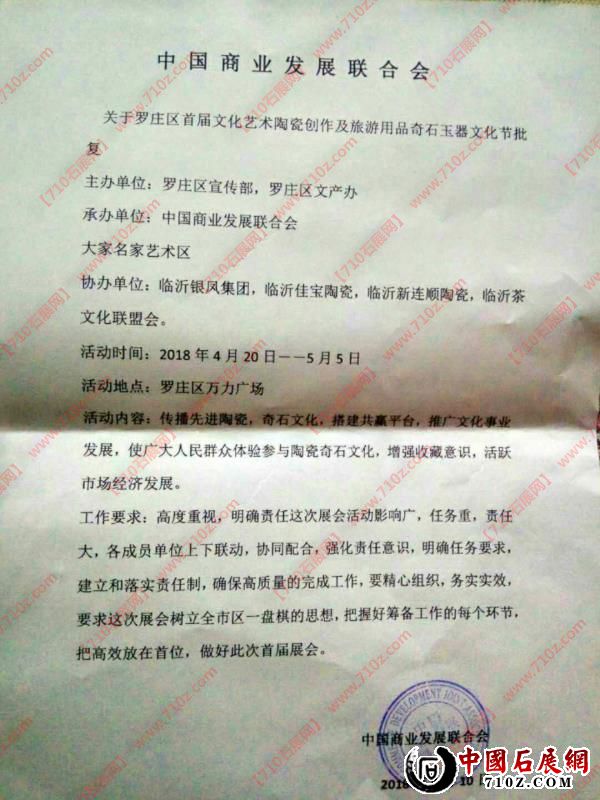 中国商业发展联合会
关于罗庄区首届文化艺术陶瓷创作及旅游用品奇石玉器文化节批
复
主办单位：罗庄区宣传部，罗庄区文产办
承办单位：中国商业发展联合会
大家名家艺术区
协办单位：临沂银凤集团，临沂佳宝陶瓷，临沂新连顺陶瓷，临沂茶
文化联盟会。
活动时间：2018年4月20日——5月5日
活动地点：罗庄区万力广场
活动内容：传播先进陶瓷，奇石文化，搭建共赢平台，推广文化事业
发展，使广大人民群众体验参与陶瓷奇石文化，增强收藏意识，活跃
市场经济发展。
工作要求：高度重视，明确责任这次展会活动影响广，任务重，责任
大，各成员单位上下联动，协同配合，强化责任意识，明确任务要求，
建立和落实责任制，确保高质量的完成工作，要精心组织，务实实效，
要求这次展会树立全市区一盘棋的思想，把握好筹备工作的每个环节，
把高效放在首位，做好此次首届展会。
DEVELOPMENT JOINT
中国商业发展联合会
2018 10日
中國石展網
710z.com
【710石展网】
www.710z.com